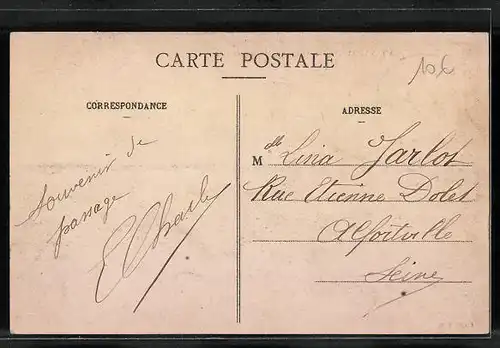 CARTE POSTALE
10€
CORRESPONDANCE
ADRESSE
Souvenir de
passage
E Charles
Mlle Lina Jarlot
Rue Etienne Dolet
Alfortville
Seine